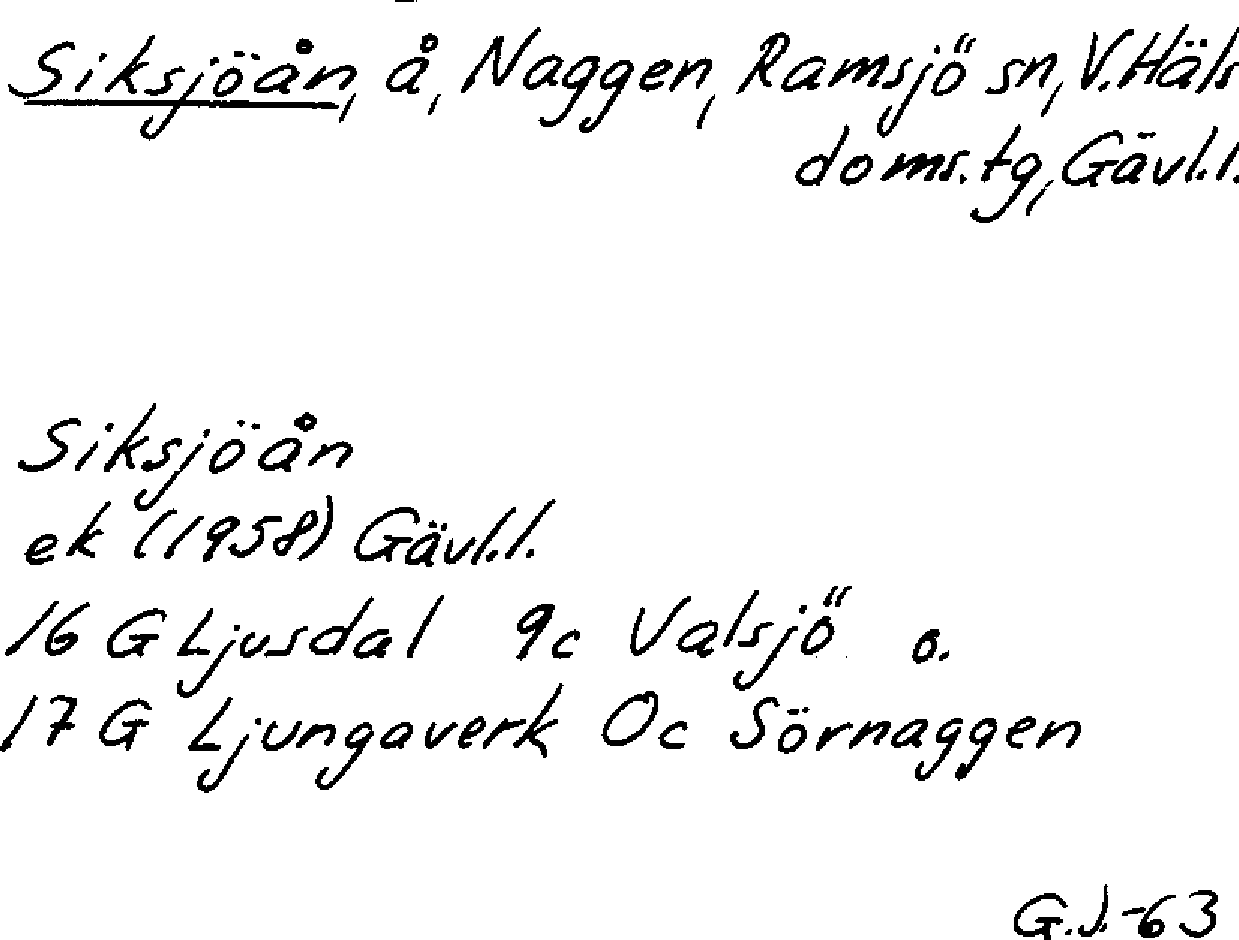 Siksjöån, å, Naggen, Ramsjö sn, V. Häls
doms.tg, Gävl.l.
Siksjöån
ek (1958) Gävl.l.
16 G Ljusdal 9c Valsjö o.
17 G Ljungaverk 0c Sörnaggen
G.J.-63